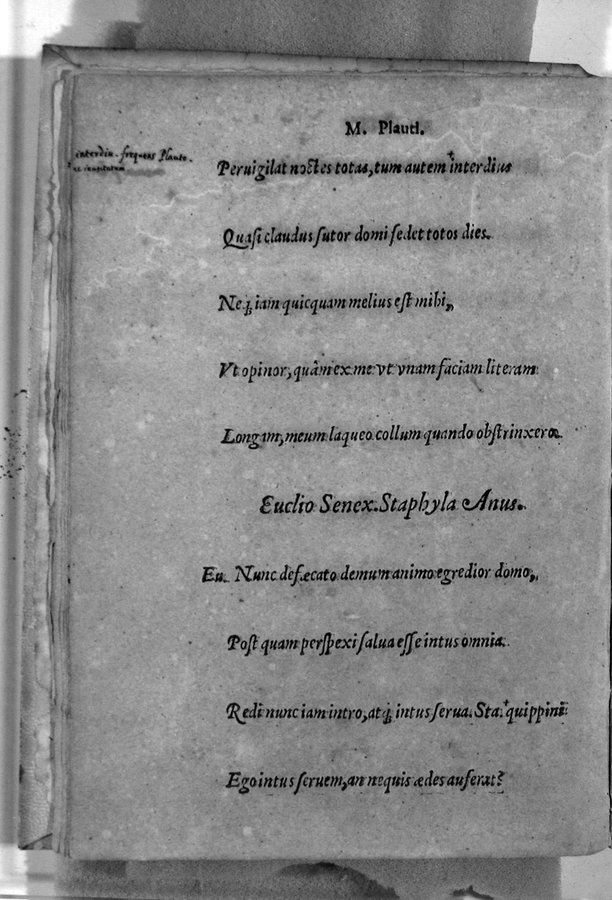 M. Plauti.
interdiu. frequens Plauto.
Peruigilat noctes totas, tum autem interdius
Quasi claudus sutor domi sedet totos dies.
Neq; iam quicquam melius est mihi,
Vt opinor, quàm ex me vt vnam faciam literam
Longam, meum laqueo collum quando obstrinxero.
Euclio Senex. Staphyla Anus.
Eu. Nunc defæcato demum animo egredior domo,
Post quam perspexi salua esse intus omnia.
Redi nunc iam intro, atq; intus serua. Sta. quippini
Ego intus seruem, an ne quis ædes auferat?